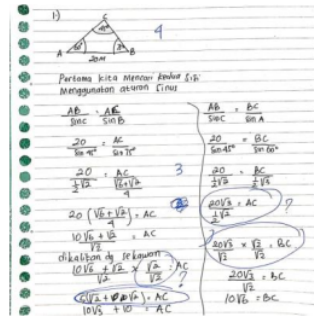 1.)
C
45°
4
60°
A
B
20m
Pertama kita mencari kedua sisi
Menggunakan aturan Sinus
AB/Sin C = AC/Sin B
20/Sin 45° = AC/Sin 75°
20/½√2 = AC/(√6+√2)/4
3
20 (√6+√2/4) = AC
10√6 + √2/√2 = AC
dikalikan dg sekawan
10√6 + √2/√2 × √2/√2 = AC
?
= AC
10√3 + 10 = AC
AB/Sin C = BC/Sin A
20/Sin 45° = BC/Sin 60°
20/½√2 = BC/½√3
20√3/½√2 = AC
?
20√3/√2 × √2/√2 = BC
?
20√3/√2 = BC
10√6 = BC